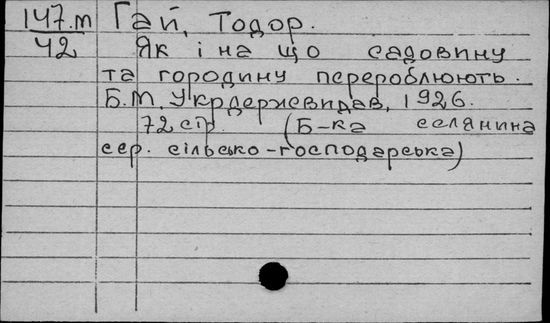 147.м Гай, Тодор.
42 Як і на що садовину
та городину перероблюють.
Б.М. Укрдержвидав, 1926.
72 стр. (Б-ка селянина
сер. сільсько-господарська)